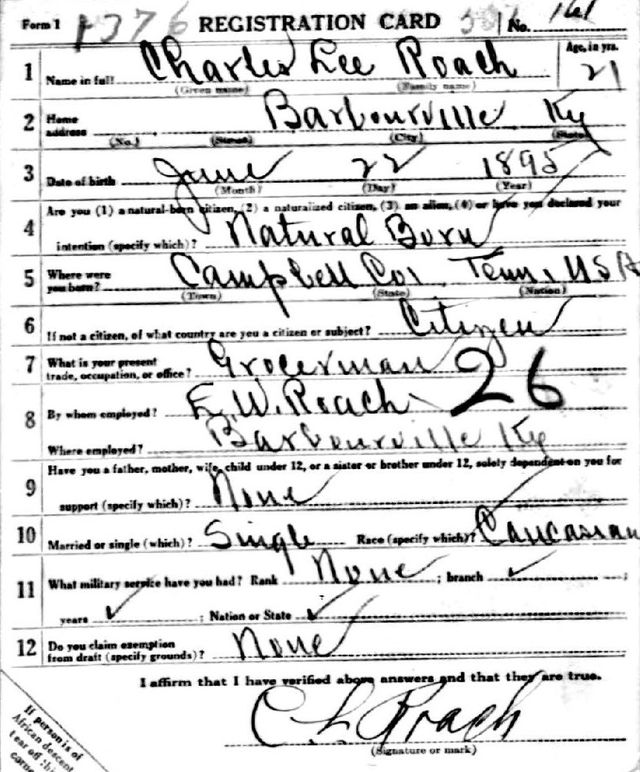 Form 1 1376 REGISTRATION CARD No. 161
1 Name in full Charles Lee Roach Age, in yrs. 21
(Given name) (Family name)
2 Home address Barbourville Ky
(No.) (Street) (City) (State)
3 Date of birth June 22 1895
(Month) (Day) (Year)
4 Are you (1) a natural-born citizen, (2) a naturalized citizen, (3) an alien, (4) or have you declared your
intention (specify which)? Natural Born
5 Where were you born? Campbell Co. Tenn, USA
(Town) (State) (Nation)
6 If not a citizen, of what country are you a citizen or subject? Citizen
7 What is your present trade, occupation, or office? Grocerman 26
8 By whom employed? E. W. Roach
Where employed? Barbourville Ky
9 Have you a father, mother, wife, child under 12, or a sister or brother under 12, solely dependent on you for
support (specify which)? None
10 Married or single (which)? Single Race (specify which)? Caucasian
11 What military service have you had? Rank None ; branch ;
years ; Nation or State
12 Do you claim exemption from draft (specify grounds)? None
I affirm that I have verified above answers and that they are true.
C L Roach
(Signature or mark)
If person is of
African descent
tear off this
corner